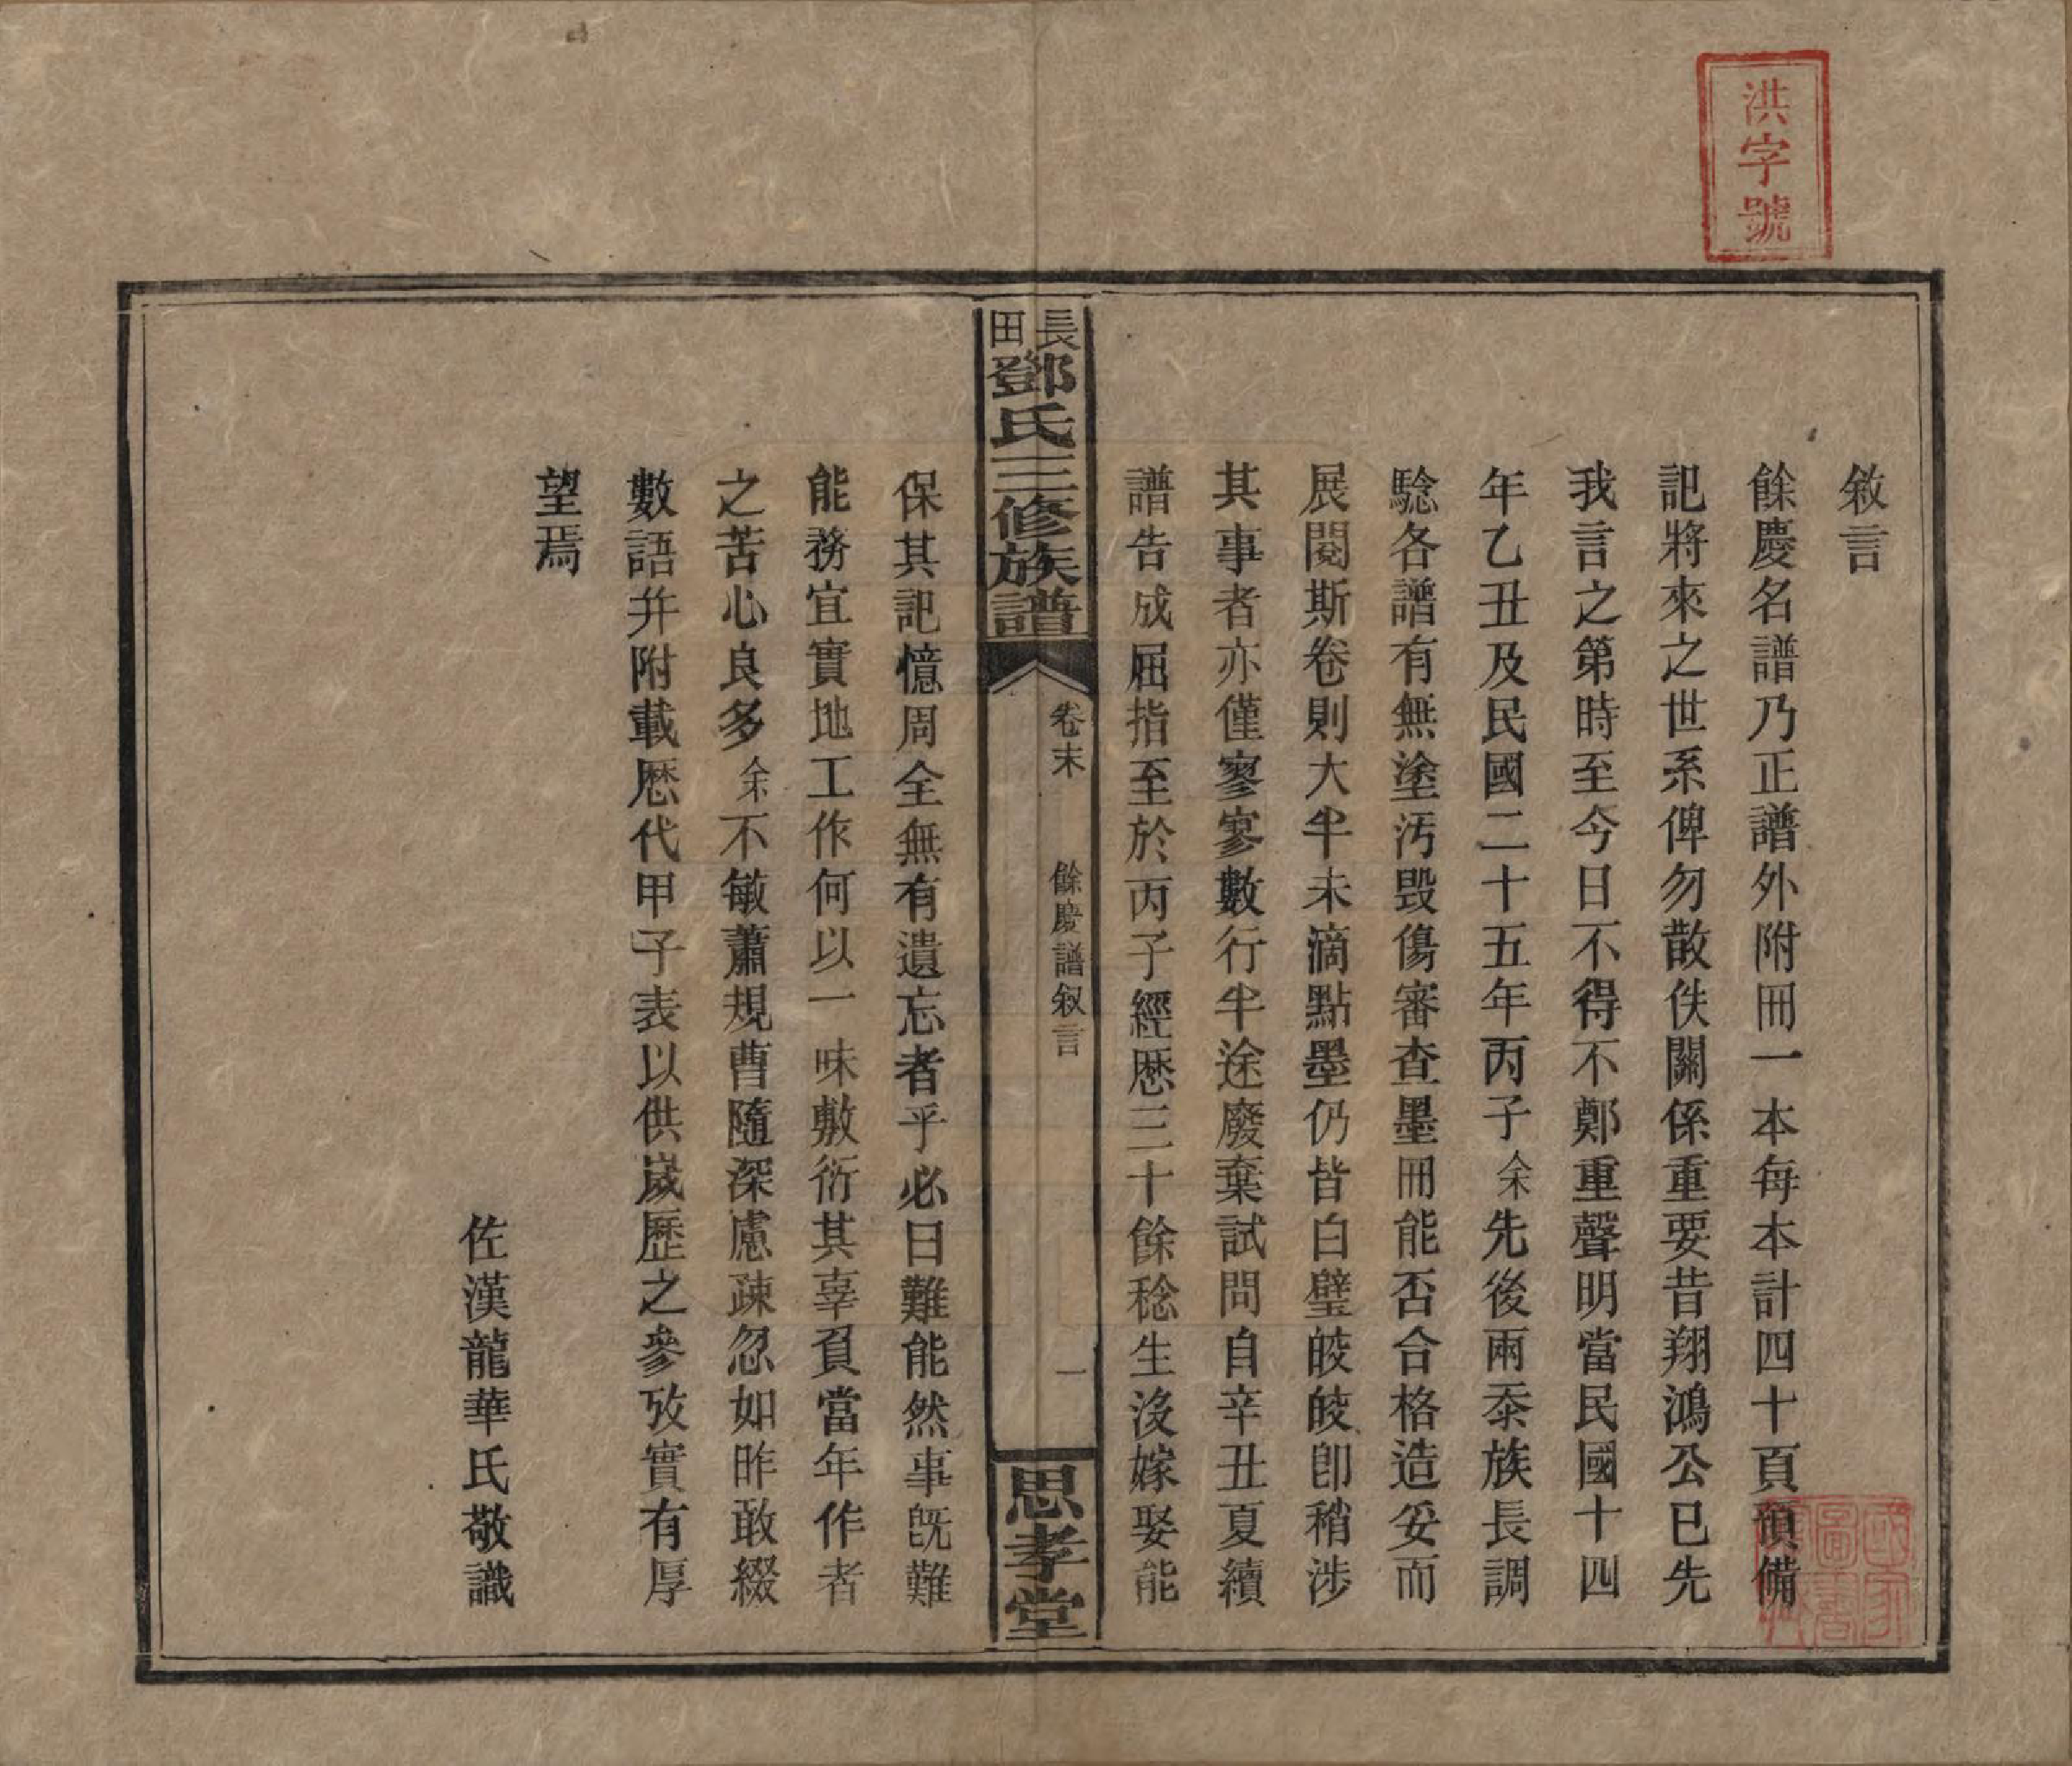 洪字號
敘言
餘慶名譜乃正譜外附冊一本每本計四十頁預備
記將來之世系俾勿散佚關係重要昔翔鴻公已先
我言之第時至今日不得不鄭重聲明當民國十四
年乙丑及民國二十五年丙子余先後兩忝族長調
騐各譜有無塗汚毁傷審查墨冊能否合格造妥而
展閱斯卷則大半未滴點墨仍皆白璧皎皎卽稍涉
其事者亦僅寥寥數行半途廢棄試問自辛丑夏續
譜告成屈指至於丙子經歷三十餘稔生沒嫁娶能
長田鄧氏三修族譜
卷末
餘慶譜敘言
一
思孝堂
保其記憶周全無有遺忘者乎必曰難能然事旣難
能務宜實地工作何以一味敷衍其辜負當年作者
之苦心良多余不敏蕭規曹隨深慮疎忽如昨敢綴
數語幷附載歷代甲子表以供嵗歷之參攷實有厚
望焉
佐漢龍華氏敬識